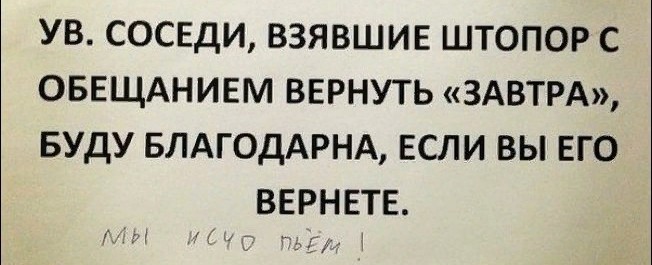 УВ. СОСЕДИ, ВЗЯВШИЕ ШТОПОР С
ОБЕЩАНИЕМ ВЕРНУТЬ «ЗАВТРА»,
БУДУ БЛАГОДАРНА, ЕСЛИ ВЫ ЕГО
ВЕРНЕТЕ.
МЫ ИСЧО ПЬЁМ!